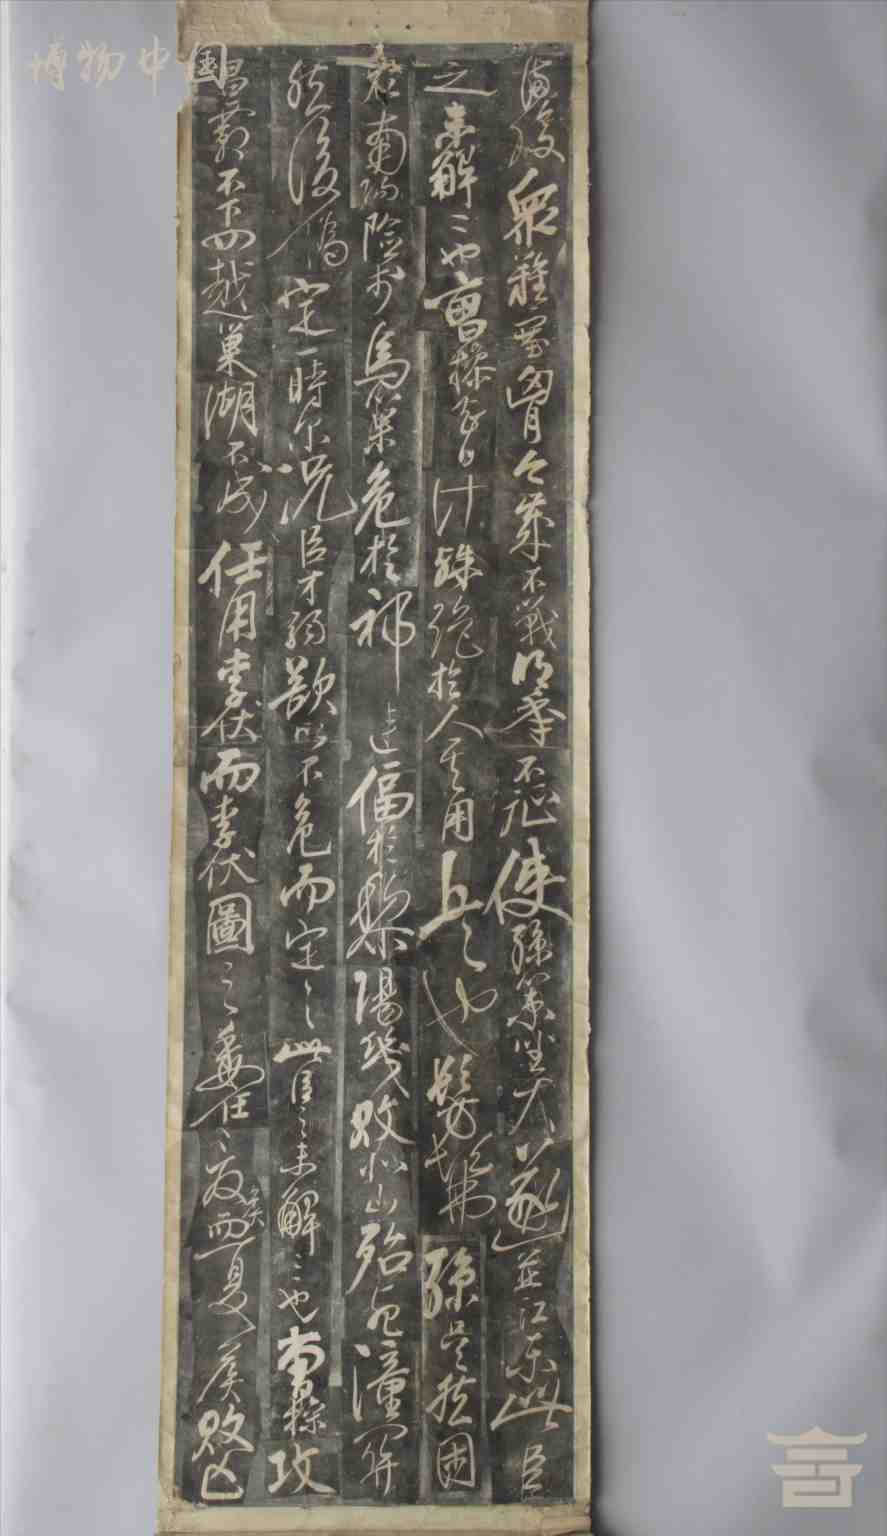 博物中国
滿腹眾難塞胸今歲不戰明年不征使孫策坐大遂並江東此臣
之未解二也曹操智計殊絕於人其用兵也髣髴孫吳然困
於南陽險於烏巢危於祁連偪於黎陽幾敗北山殆死潼關
然後偽定一時尔況臣才弱欲以不危而定之此臣之未解三也曹操攻
昌霸不下四越巢湖不成任用李伏而李伏圖之委任夏侯而夏侯敗亡